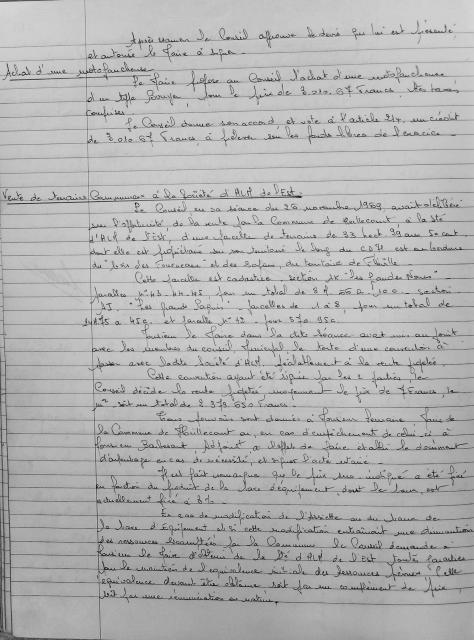 Après examen le Conseil approuve le devis qui lui est présenté
et autorise le Maire à signer.
Achat d'une motofaucheuse
Le Maire propose au Conseil l'achat d'une motofaucheuse
d'un type Bouyer, pour le prix de 3.010.67 Francs, toutes taxes
comprises.
Le Conseil donne son accord et vote à l'article 214, un crédit
de 3.010.67 Francs, à prélever sur les fonds libres de l'exercice.
Vente de terrains Communaux à la Société d'HLM de l'Est.
Le Conseil, en sa séance du 26 novembre 1969, avait délibéré
sur l'opportunité, de la vente par la Commune de à la Sté
d'HLM de l'Est, d'une parcelle de terrains de 33 hect 99 ares 50 cent.
dont elle est propriétaire sur son territoire le long du CD et en bordure
du "bois des et des Sapins, du territoire de
Cette parcelle est cadastrée section "les Grandes
parcelles n° 43-44-45, pour un total de 8 H section
"Les grands Sapins" parcelles de 1 à 8, pour un total de
a 45 c, et parcelle n° 12 pour 57 a 95 c.
Monsieur le Maire dans la dite séance avait mis au point
avec les membres du conseil, le texte d'une convention à
passer avec ladite Société d'HLM, préalablement à la vente projetée.
Cette convention ayant été signée par les 2 parties, le
Conseil décide la vente projetée moyennant le prix de 7 Francs, le
m² soit un total de 2.379.650 Francs.
Tous pouvoirs sont donnés à Monsieur Maire de
la Commune de ou, en cas d'empêchement de celui-ci à
Monsieur Adjoint à l'effet de faire établir le document
d'arpentage en cas de nécessité, et signer l'acte
Il est fait remarquer que le prix sus-indiqué a été fixé
en fonction du produit de la taxe d'équipement, dont le taux est
actuellement fixé à 3%.
En cas de modification de l'assiette ou du taux de
la taxe d'Equipement et si cette modification entraînait une diminution
des ressources escomptées par la Commune, le Conseil demande à
Monsieur le Maire d'obtenir de la Sté d'HLM de l'Est toutes garanties
pour le maintien de l'équivalence initiale des ressources prévues. Cette
équivalence devant être obtenue soit par un complément de prix,
soit par une rémunération en nature.